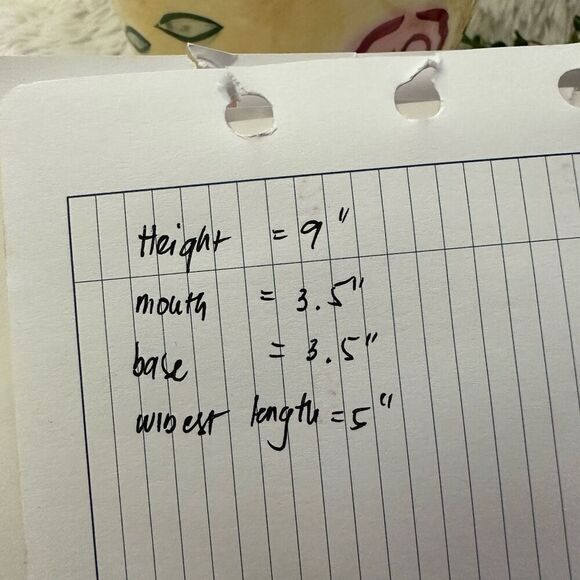 Height = 9"
mouth = 3.5"
base = 3.5"
widest length = 5"